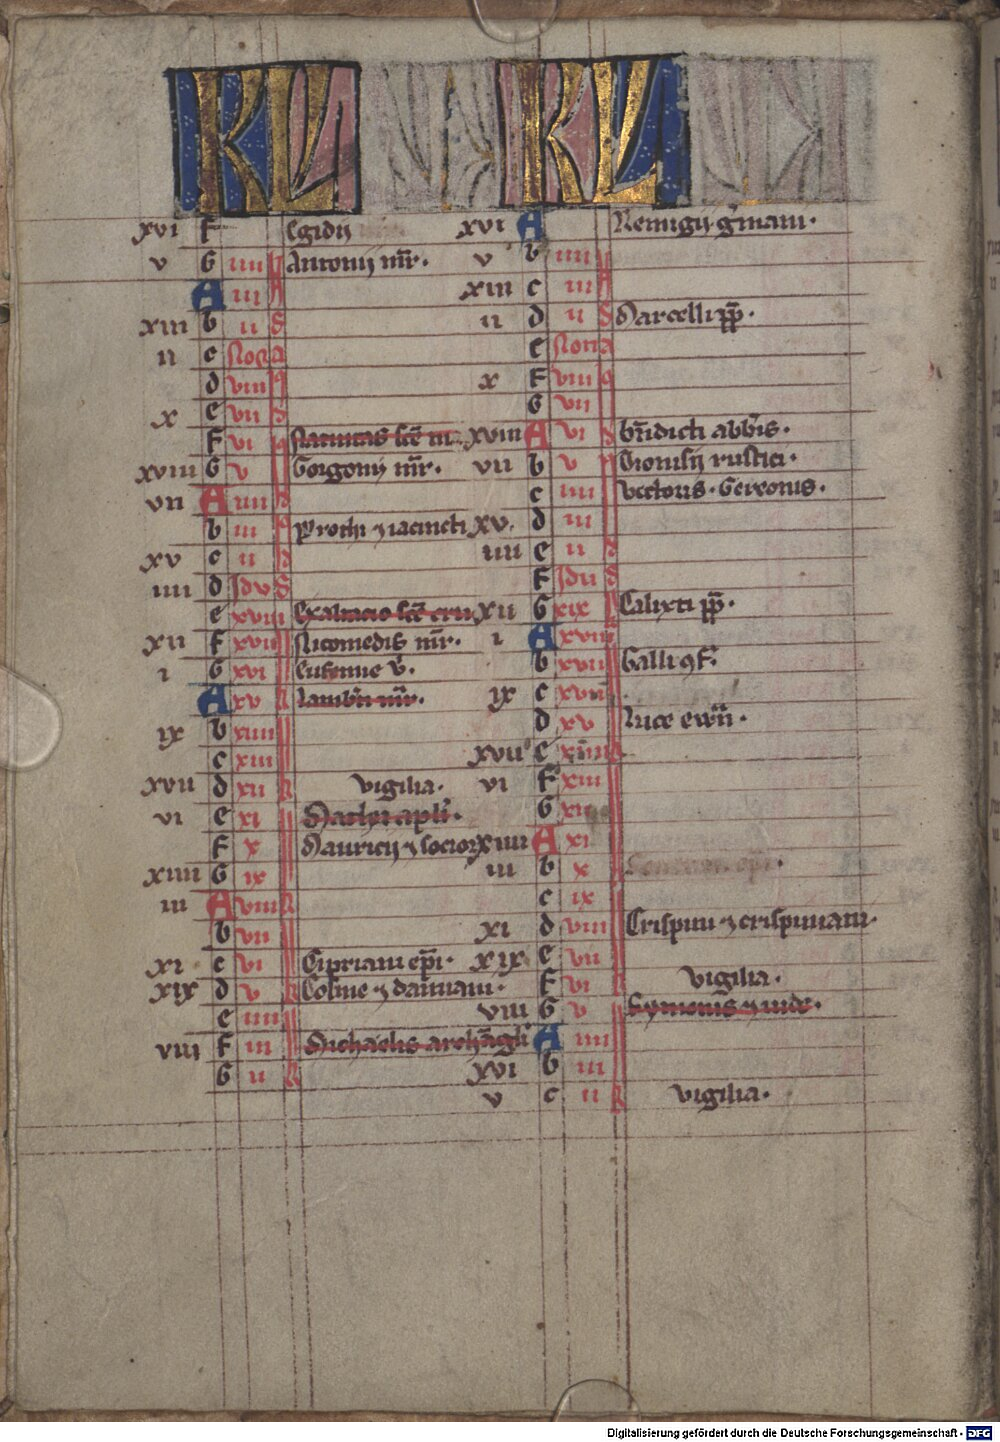 KL
xvi f Egidii
v G iiii N Antonii mr̄.
A iii A
xiii b ii S
ii c Nona
d viii q
x e vii d
f vi q Natiuitas scē m
xviii G v Gorgonii mr̄.
vii A iiii d
b iii q Prothi ⁊ iacincti
xv c ii d
iiii d Idv S
e xviii Exaltacio scē cru
xii f xvii Nicomedis mr̄.
i G xvi Eufemie v̄.
A xv k Lamb̄ti mr̄.
ix b xiiii
c xiii
xvii d xii k vigilia.
vi e xi Mathei apl̄i.
f x Mauricij ⁊ socior
xiiii G ix
iii A viii k
b vii
xi c vi Cipriani ep̄i.
xix d v k Cosme ⁊ damiani.
e iiii
viii f iii Michaelis archāgli
G ii k
KL
xvi A Remigii g̃mani.
v b iiii N
xiii c iii A
ii d ii S Marcelli pp̄.
e Nona
x f viii q
G vii
xviii A vi d bn̄dicti abb̄is.
vii b v Dionisij rustici.
c iiii Victoris. Gereonis.
xv. d iii
iiii e ii d
f Idu S
xii G xix Calixti pp̄.
i A xviii
b xvii Galli ꝯf̄.
ix c xvi
d xv Luce ewn̄.
xvii e xiiii k
vi f xiii
G xii
xiiii A xi
iii b x
c ix
xi d viii Crispini ⁊ crispiniani.
xix e vii
f vi k vigilia.
viii G v Symonis ⁊ iude.
A iiii
xvi b iii
v c ii k vigilia.
Digitalisierung gefördert durch die Deutsche Forschungsgemeinschaft - DFG